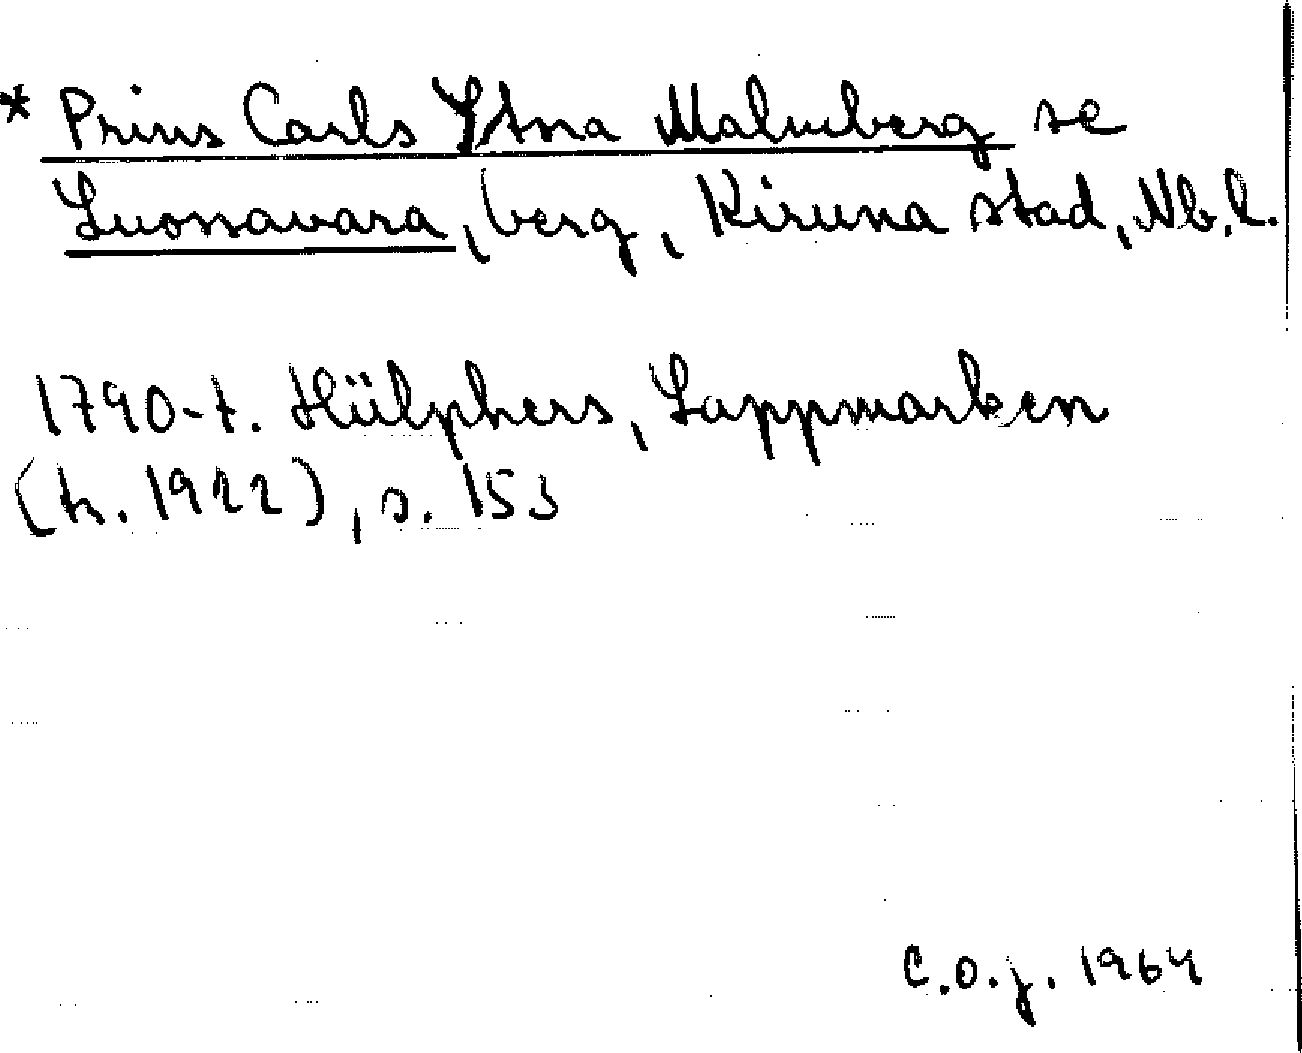 * Prins Carls Ystra Malmberg se
Luossavara, berg, Kiruna stad, Nb. l.
1790-t. Hülphers, Lappmarken
(h. 1922), s. 153
C.O.J. 1964